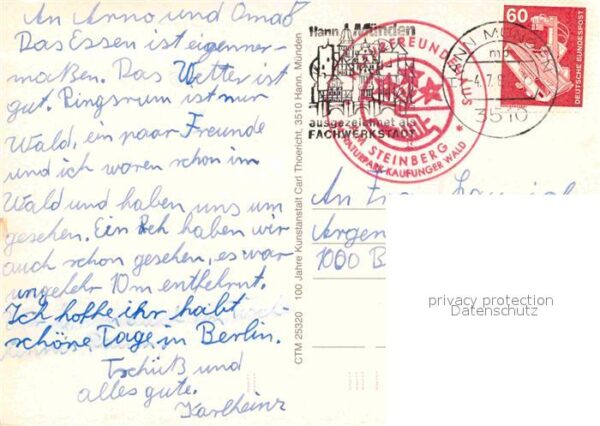 An Anno und Omaß
Das Essen ist eigenner-
maßen. Das Wetter ist
gut. Ringsrum ist nur
Wald, ein paar Freunde
und ich waren schon im
Wald und haben uns um
gesehen. Ein Reh haben wir
auch schon gesehen, es war
ungefehr 10m entfehrnt.
Ich hoffe ihr habt
schöne Tage in Berlin.
Tschüß und
alles gute.
Karlheinz
CTM 25320 100 Jahre Kunstanstalt Carl Thoericht, 3510 Hann. Münden
Hann. Münden
ausgezeichnet als
FACHWERKSTADT
STEINBERG
NATURPARK KAUFUNGER WALD
HANN MÜNDEN
3510
60
DEUTSCHE BUNDESPOST
An
1000 B
privacy protection
Datenschutz